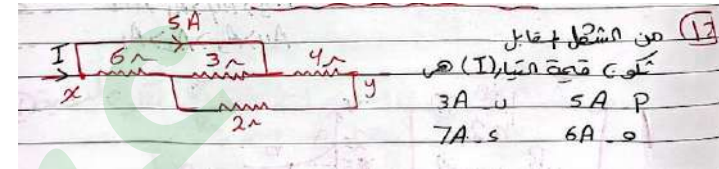 12 من الشكل المقابل
تكون قيمة التيار (I) هى
P_ 5A ب_ 3A
ج_ 6A د_ 7A
5A
I 6Ω 3Ω 4Ω
x y
2Ω